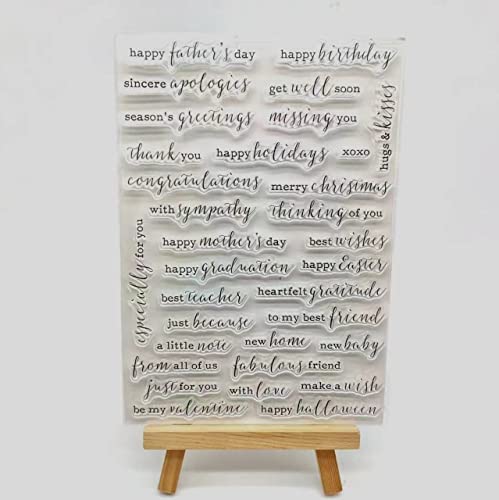 happy father's day
happy birthday
sincere apologies
get well soon
season's greetings
missing you
hugs & kisses
thank you
happy holidays
xoxo
congratulations
merry christmas
with sympathy
thinking of you
especially for you
happy mother's day
best wishes
happy graduation
happy Easter
best teacher
heartfelt gratitude
just because
to my best friend
a little note
new home
new baby
from all of us
fabulous friend
just for you
with love
make a wish
be my valentine
happy halloween